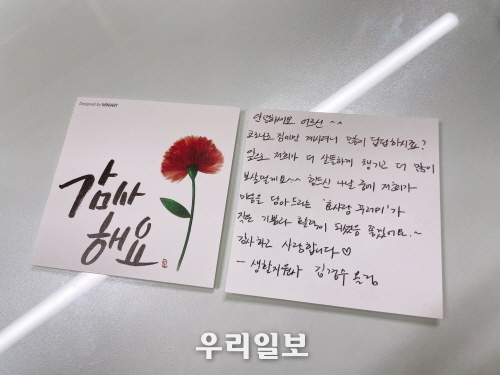 Designed by MINIART
감사
해요
안녕하세요 어르신 ^^
코로나로 집에만 계시려니 많이 답답하시죠?
앞으로 저희가 더 살뜰하게 챙기고 더 많이
보살필게요~~ 힘드신 나날 중에 저희가
마음을 담아드리는 "효사랑 꾸러미"가
작은 기쁨과 활력이 되었음 좋겠어요.~
감사하고 사랑합니다♡
- 생활지원사 김경수 올림
우리일보